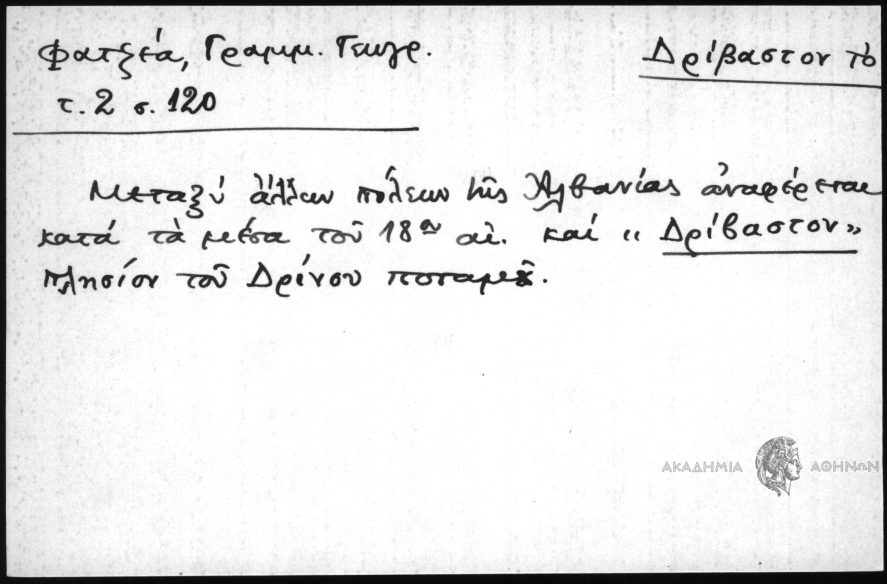 Φατζέα, Γραμμ. Γεωγρ.
τ. 2 σ. 120
Δρίβαστον τὸ
Μεταξύ ἄλλων πόλεων τῆς Ἀλβανίας ἀναφέρεται
κατά τὰ μέσα τοῦ 18ου αἰ. καί "Δρίβαστον"
πλησίον τοῦ Δρίνου ποταμοῦ.
ΑΚΑΔΗΜΙΑ ΑΘΗΝΩΝ